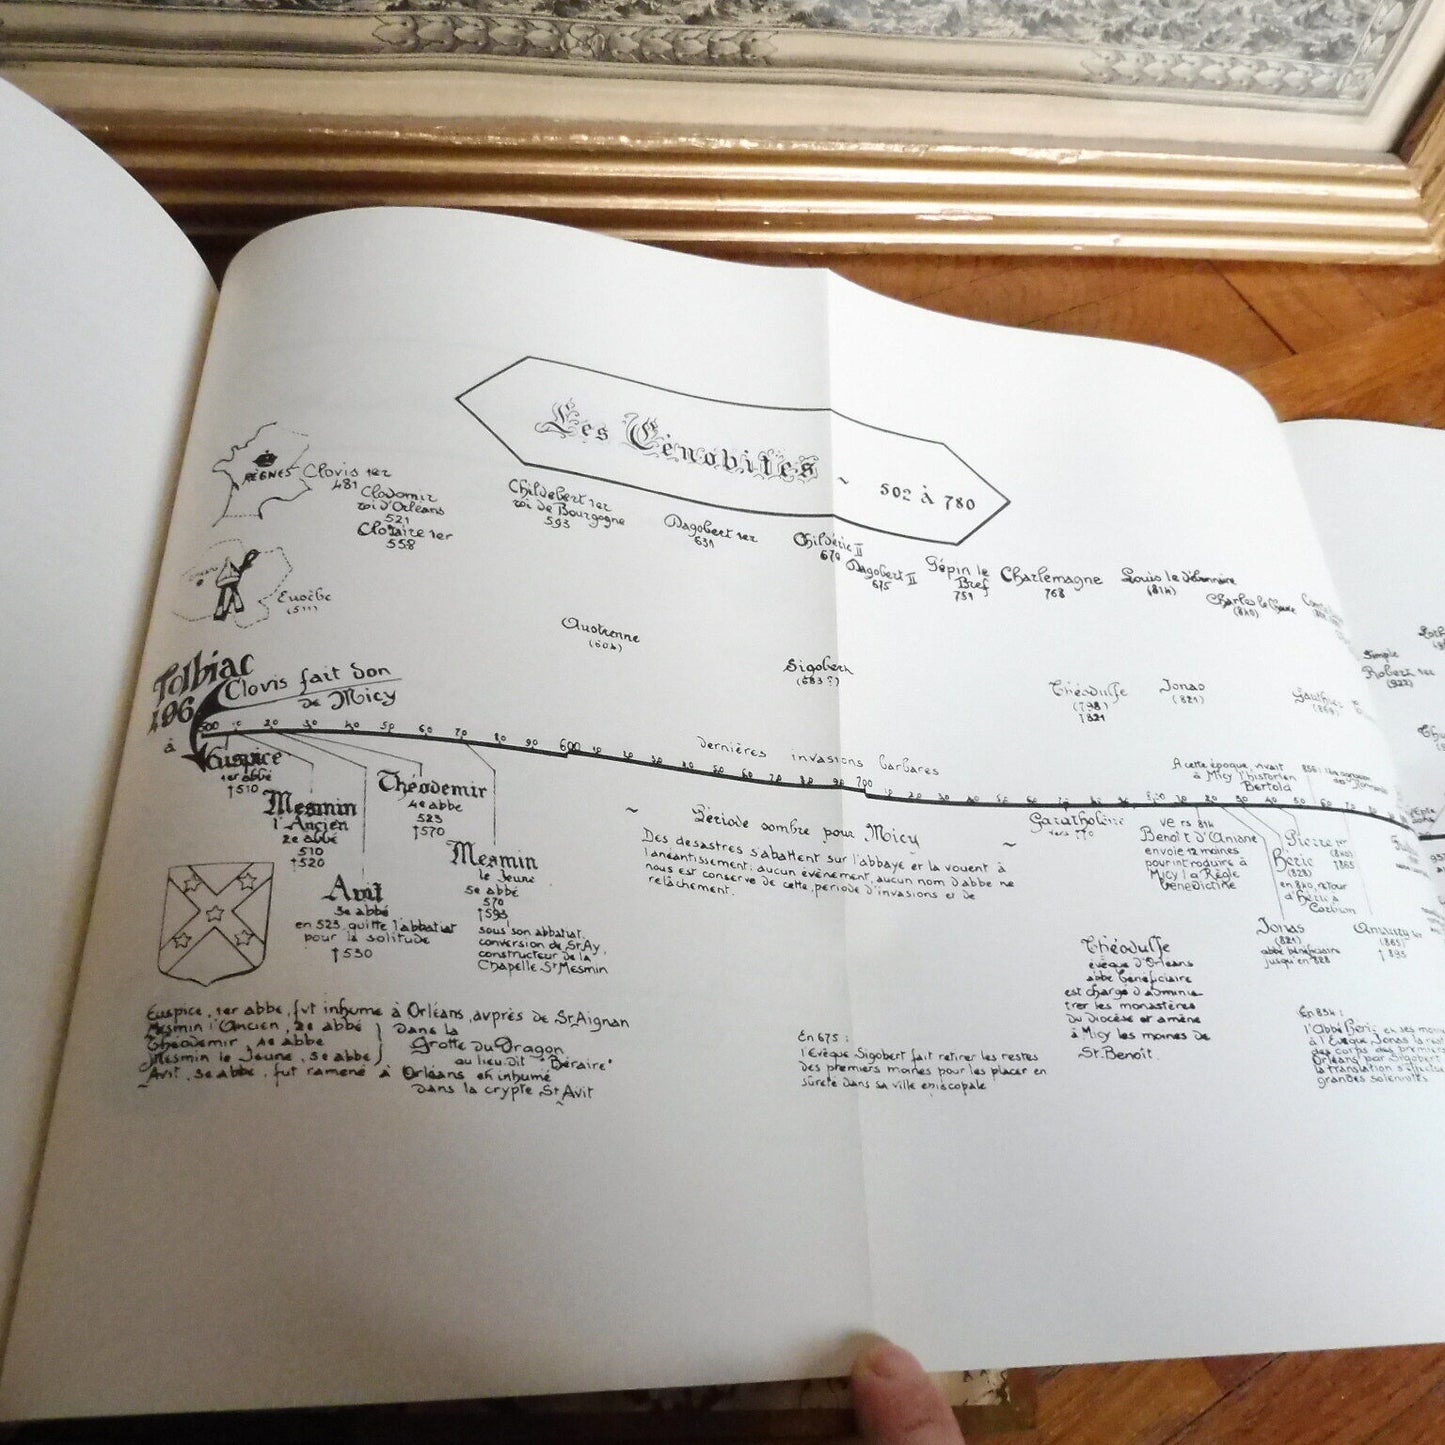 Les Cénobites ~ 502 à 780
RÈGNES
Clovis 1er
481
Clodomir
roi d'Orléans
521
Clotaire 1er
558
Childebert 1er
roi de Bourgogne
593
Dagobert 1er
631
Childéric II
670
Dagobert II
675
Pépin le
Bref
751
Charlemagne
768
Louis le
(814)
Charles le
(840)
Simple
Robert 1er
(922)
Eusèbe
(511)
Austrenne
(604)
Sigobert
(683?)
Théodulfe
(798)
†821
Jonas
(821)
Gauthier
(869)
Tolbiac
496
à
Clovis fait don
de Micy
500 10 20 30 40 50 60 70 80 90 600 10 20 30 40 50 60 70 80 90 700 10 20 30 40 50 60 70
Dernières invasions barbares
A cette époque, vivait
à Micy l'historien
Bertold
Euspice
1er abbé
†510
Mesmin
l'Ancien
2e abbé
510
†520
Avit
3e abbé
en 523, quitte l'abbatiat
pour la solitude
†530
Théodemir
4e abbé
523
†570
Mesmin
le Jeune
5e abbé
570
†593
sous son abbatiat,
conversion de St Ay,
constructeur de la
Chapelle St Mesmin
~ Période sombre pour Micy ~
Des desastres s'abattent sur l'abbaye et la vouent à
l'anéantissement; aucun evènement, aucun nom d'abbe ne
nous est conserve de cette periode d'invasions et de
relâchement.
vers 770
vers 814
Benoît d'Aniane
envoie 12 moines
pour introduire à
Micy la Règle
bénédictine
Pierre 1er
(840)
†865
Héric
(828)
en 840, retour
d'Héric à
Corbion
Jonas
(821)
abbé bénéficiaire
jusqu'en 828
Amaury
(865)
†895
Théodulfe
évêque d'Orléans
abbe bénéficiaire
est chargé d'adminis
trer les monastères
du Diocèse et amène
à Micy les moines de
St. Benoît.
Euspice, 1er abbe, fut inhume à Orléans, auprès de St Aignan
Mesmin l'Ancien, 2e abbé
Théodemir, 4e abbe
Mesmin le Jeune, 5e abbe
Dans la
Grotte du Dragon
au lieu dit "Béraire"
Avit, 3e abbe, fut ramené à Orléans et inhumé
dans la crypte St Avit
En 675 :
l'Evêque Sigobert fait retirer les restes
des premiers moines pour les placer en
sûreté dans sa ville episcopale
En 854 :
l'Abbé Héric
à l'Evêque Jonas
des corps des premiers
Orléans par Sigobert
la translation
grandes solennités